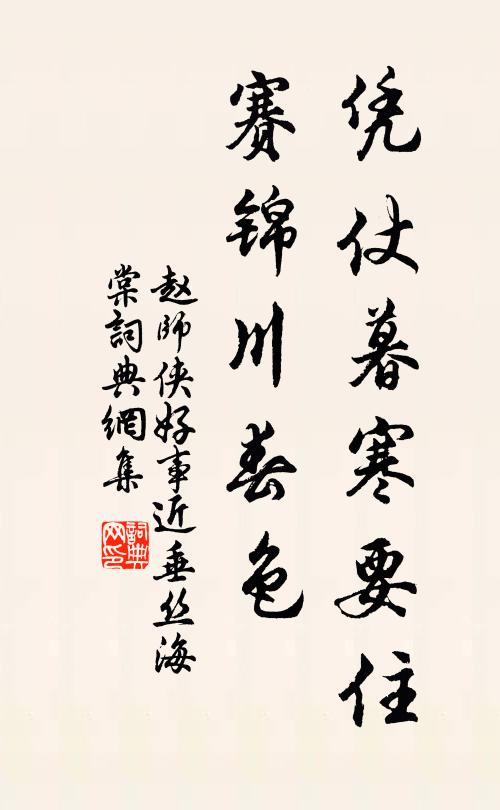 凭仗暮寒要住
赛锦川春色
赵師侠好事近垂丝海
棠詞典網集
詞典网印